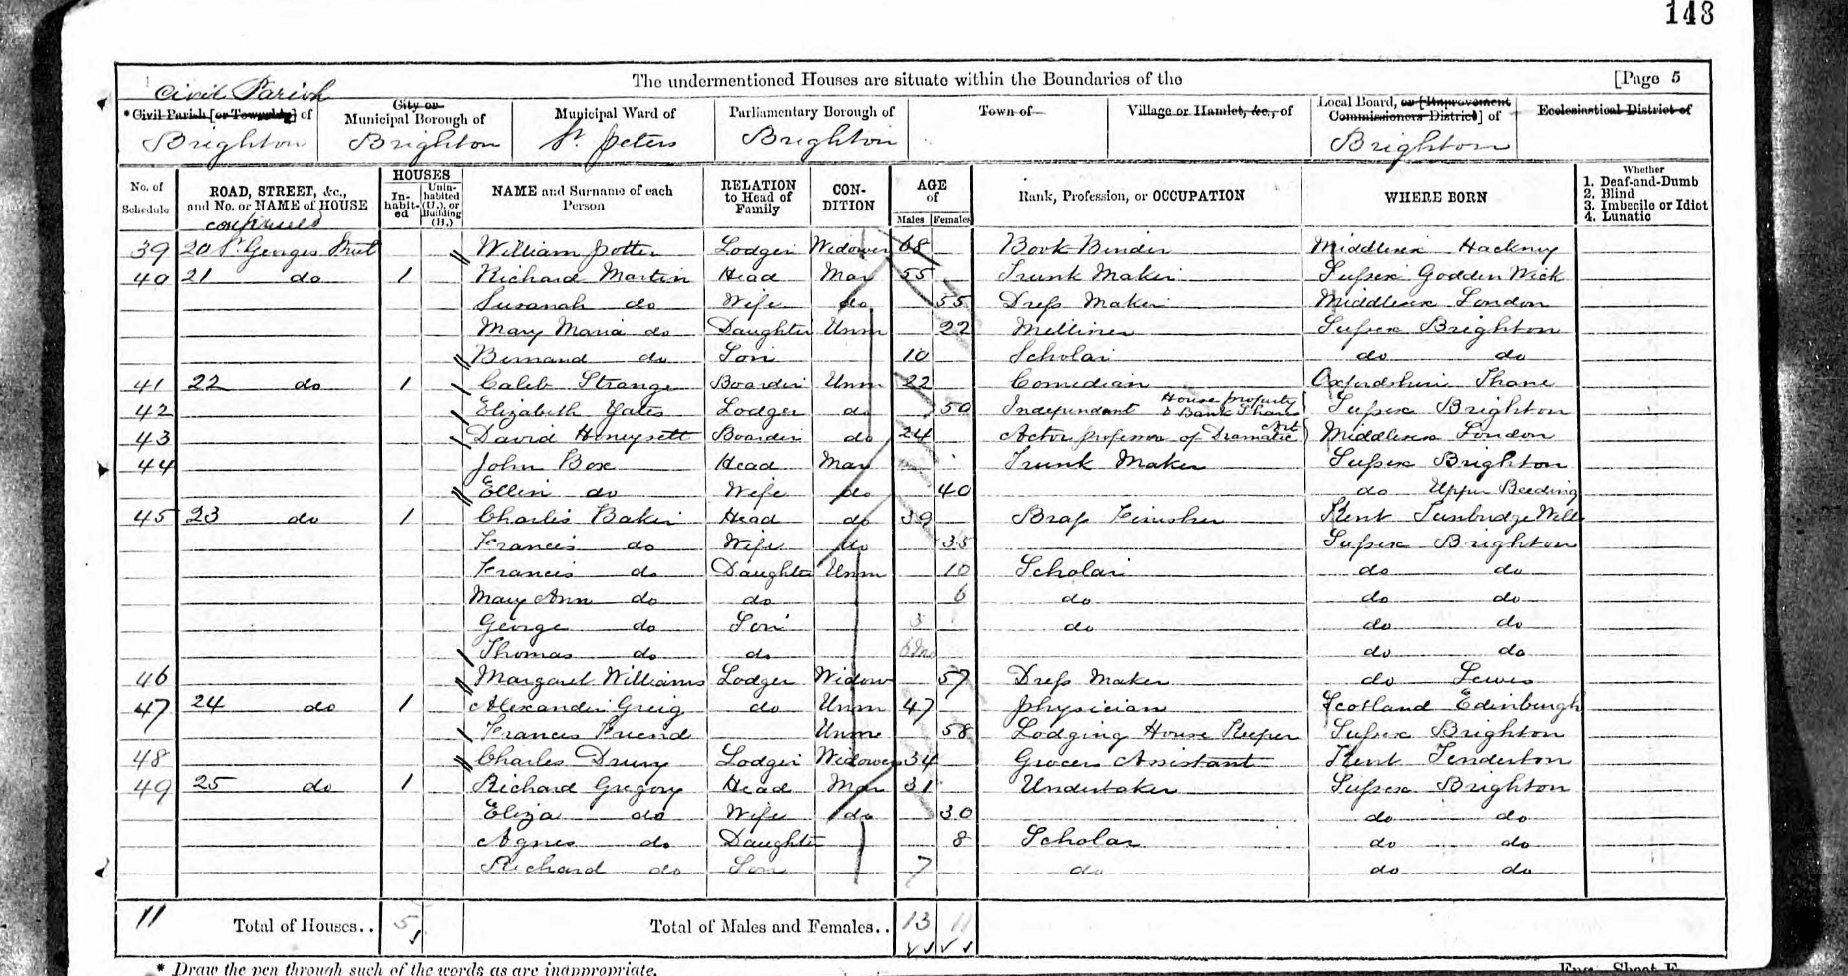 148
The undermentioned Houses are situate within the Boundaries of the [Page 5
Civil Parish
* Civil Parish [or Township] of City or Municipal Borough of Municipal Ward of Parliamentary Borough of Town of Village or Hamlet, &c., of Local Board, or [Improvement Commissioners District] of Ecclesiastical District of
Brighton Brighton St. Peters Brighton Brighton
No. of Schedule ROAD, STREET, &c., and No. or NAME of HOUSE HOUSES Inhabited Uninhabited (U.), or Building (B.) NAME and Surname of each Person RELATION to Head of Family CONDITION AGE of Males Females Rank, Profession, or OCCUPATION WHERE BORN Whether 1. Deaf-and-Dumb 2. Blind 3. Imbecile or Idiot 4. Lunatic
continued
39 20 St. Georges Street William Potter Lodger Widower 68 Book Binder Middlesex Hackney
40 21 do 1 Richard Martin Head Mar 55 Trunk Maker Sussex Godden Wick
Susanah do Wife do 55 Dress Maker Middlesex London
Mary Maria do Daughter Unm 22 Milliner Sussex Brighton
Bernard do Son 10 Scholar do do
41 22 do 1 Caleb Strange Boarder Unm 22 Comedian Oxfordshire Thane
42 Elizabeth Yates Lodger do 50 Independant House property & Bank Shares Sussex Brighton
43 David Honeysett Boarder do 24 Actor professor of Dramatic Art Middlesex London
44 John Box Head Mar Trunk Maker Sussex Brighton
Ellen do Wife do 40 do Upper Beeding
45 23 do 1 Charles Baker Head do 39 Brass Finisher Kent Tunbridge Wells
Francis do Wife do 35 Sussex Brighton
Francis do Daughter Unm 10 Scholar do do
Mary Ann do do 6 do do do
George do Son 3 do do do
Thomas do do 6m do do
46 Margaret Williams Lodger Widow 57 Dress Maker do Lewes
47 24 do 1 Alexander Greig do Unm 47 Physician Scotland Edinburgh
Francis Friend Unm 58 Lodging House Keeper Sussex Brighton
48 Charles Drury Lodger Widower 34 Grocers Assistant Kent Tenderton
49 25 do 1 Richard Gregory Head Mar 31 Undertaker Sussex Brighton
Eliza do Wife do 30 do do
Agnes do Daughter 8 Scholar do do
Richard do Son 7 do do do
11 Total of Houses.. 5 Total of Males and Females.. 13 11
* Draw the pen through such of the words as are inappropriate. Eng. Sheet E